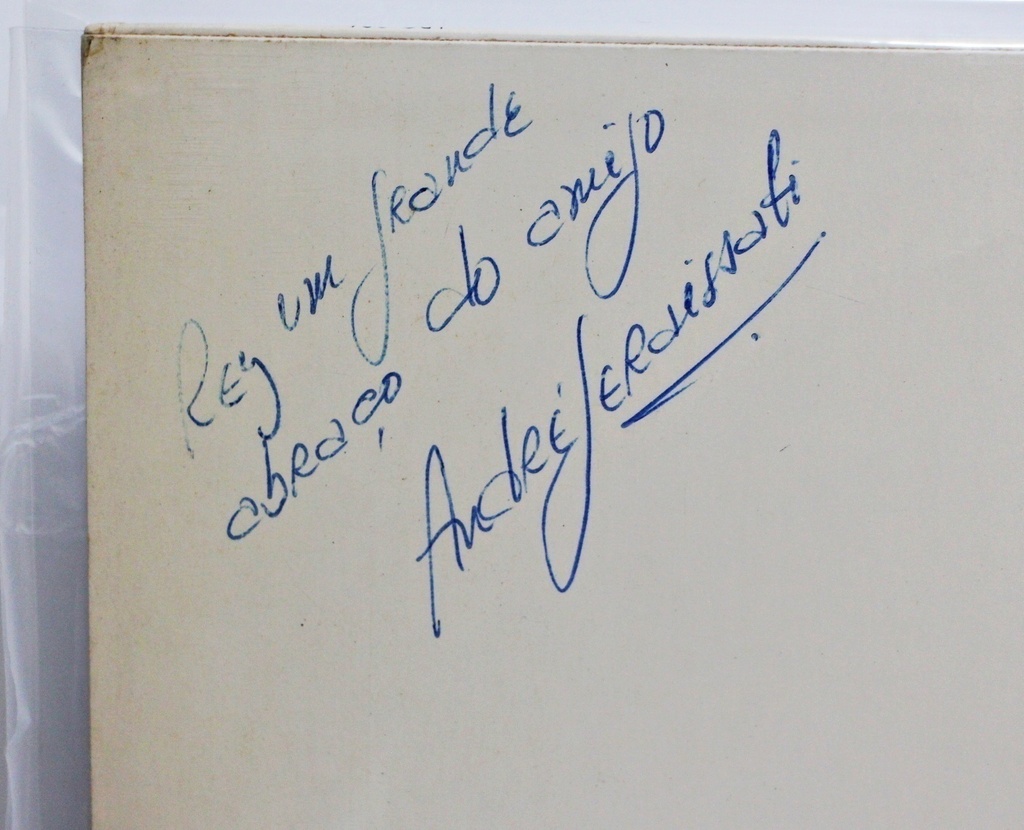 Rey um grande
abraço do amigo
André Geraissati